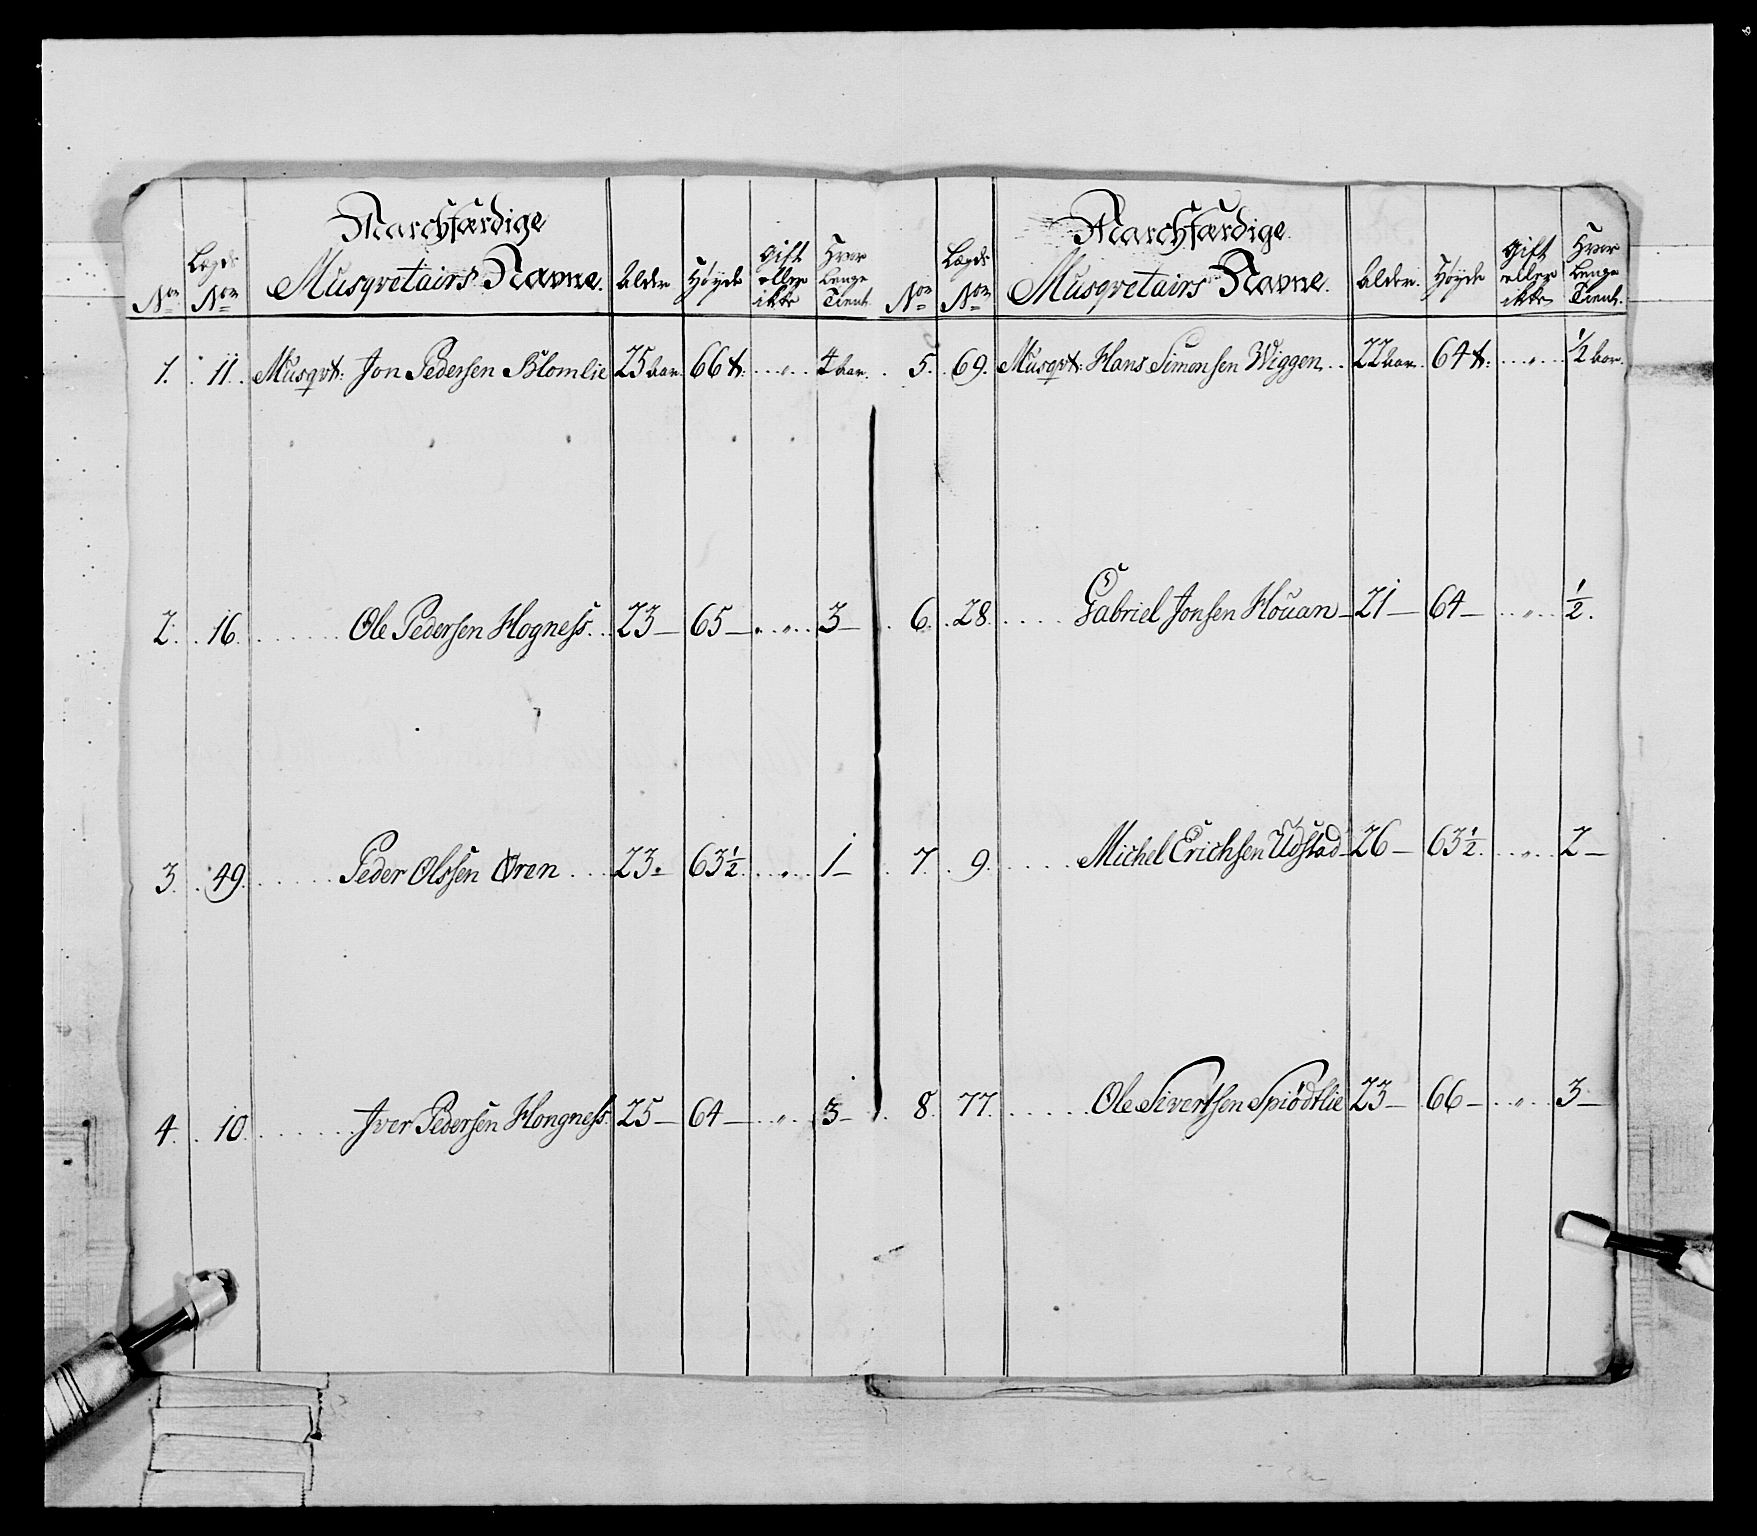 Marchfærdige
Nor Lægds Nor Musqvetairs Navne. Alder Høyde Gift eller ikke Hvor Lenge Tient
1. 11. Musqvt: Jon Pedersen Blomlie 25 aar 66 t: " 4 aar.
2. 16. Ole Pedersen Hogness. 23— 65— " 3—
3. 49. Peder Olssen Øren 23. 63½ " 1—
4. 10. Iver Pedersen Hongness. 25— 64— " 3—
Marchfærdige
Nor Lægds Nor Musqvetairs Navne. Alder. Høyde Gift eller ikke Hvor Lenge Tient.
5. 69. Musqvt: Hans Simonsen Wiggen 22 aar 64 t: " ½ aar.
6. 28. Gabriel Jonsen Houan— 21— 64— " ½.
7. 9. Michel Erichsen Udstad 26— 63½. " 2—
8. 77. Ole Sivertsen Spiødtlie 23— 66— " 3—